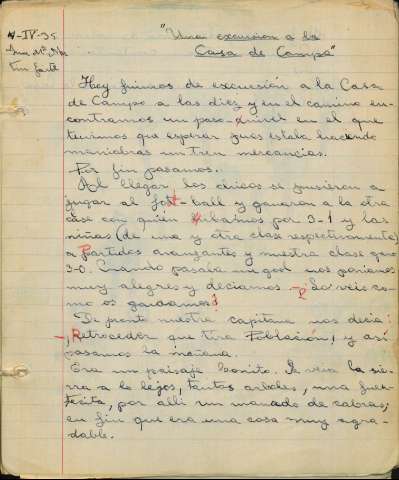 4-IV-35
"Una excursión a la
Casa de Campo"
Hoy fuimos de excursión a la Casa
de Campo a las diez y en el camino en-
contramos un paso-nivel en el que
tuvimos que esperar pues estaba haciendo
maniobras un tren mercancias.
Por fin pasamos.
Al llegar los chicos se pusieron a
jugar al foot-ball y ganaron a la otra
clase con quién ibamos por 3-1 y las
niñas (de una y otra clase respectivamente)
a Partidos avanzantes y nuestra clase ganó
3-0. Cuando pasaba un gool nos poniamos
muy alegres y deciamos -¿Lo veis co-
mo os ganamos?
De pronto nuestra capitana nos decia:
-¡Retroceder que tira Población! y así
pasamos la mañana.
Era un paisaje bonito. Se veia la sie-
rra a lo lejos, tantos arboles, una fuen-
tecita, por alli un manada de cabras,
en fin que era una cosa muy agra-
dable.